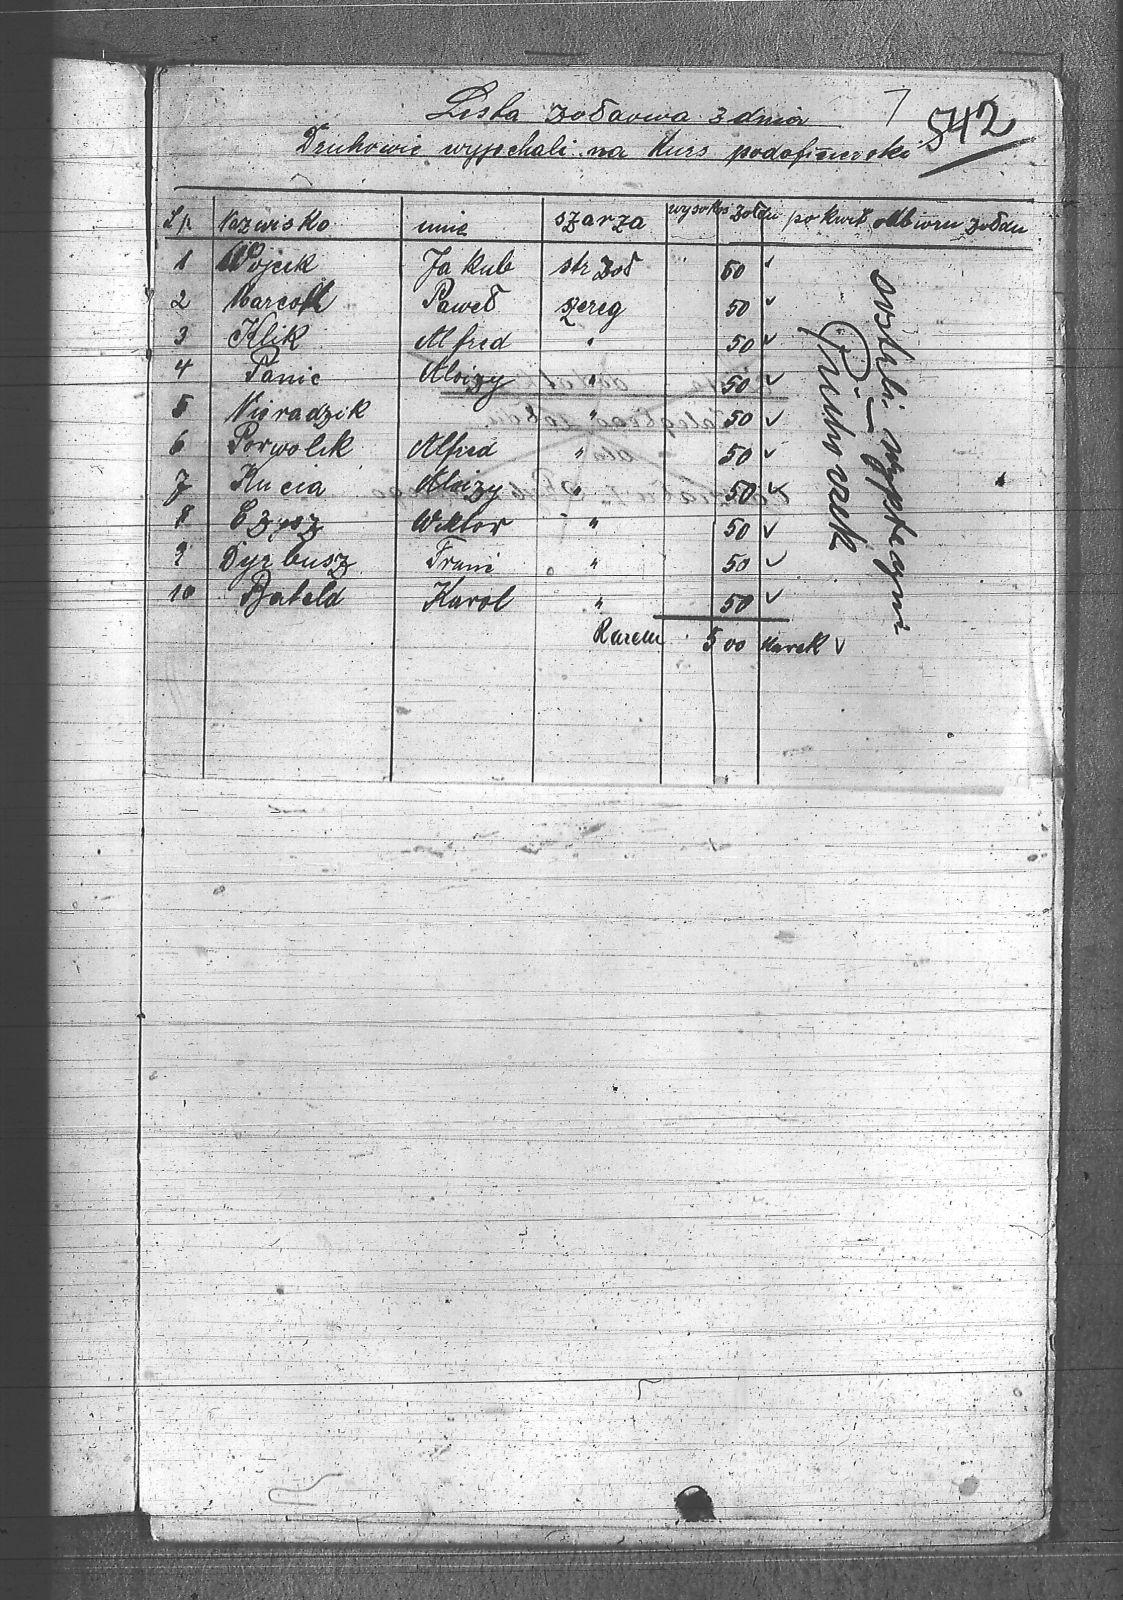 Lista żołdowa z dnia 7 542
Druhowie wyjechali na Kurs podoficerski
L.p. Nazwisko imie szarza wysokoś żołdu pokwit. odbioru żołdu
1 Wojcik Jakub str zoł 50 ✓
2 Marcoll Paweł szereg 50 ✓
3 Klik Alfred " 50 ✓
4 Panic Aloizy " 50 ✓
5 Nieradzik " 50 ✓
6 Porwolik Alfred " 50 ✓
7 Kucia Aloizy " 50 ✓
8 Czysz Wiktor " 50 ✓
9 Dyrbusz Franc " 50 ✓
10 Bateld Karol " 50 ✓
Razem 500 Marek ✓
zostali wypłaceni